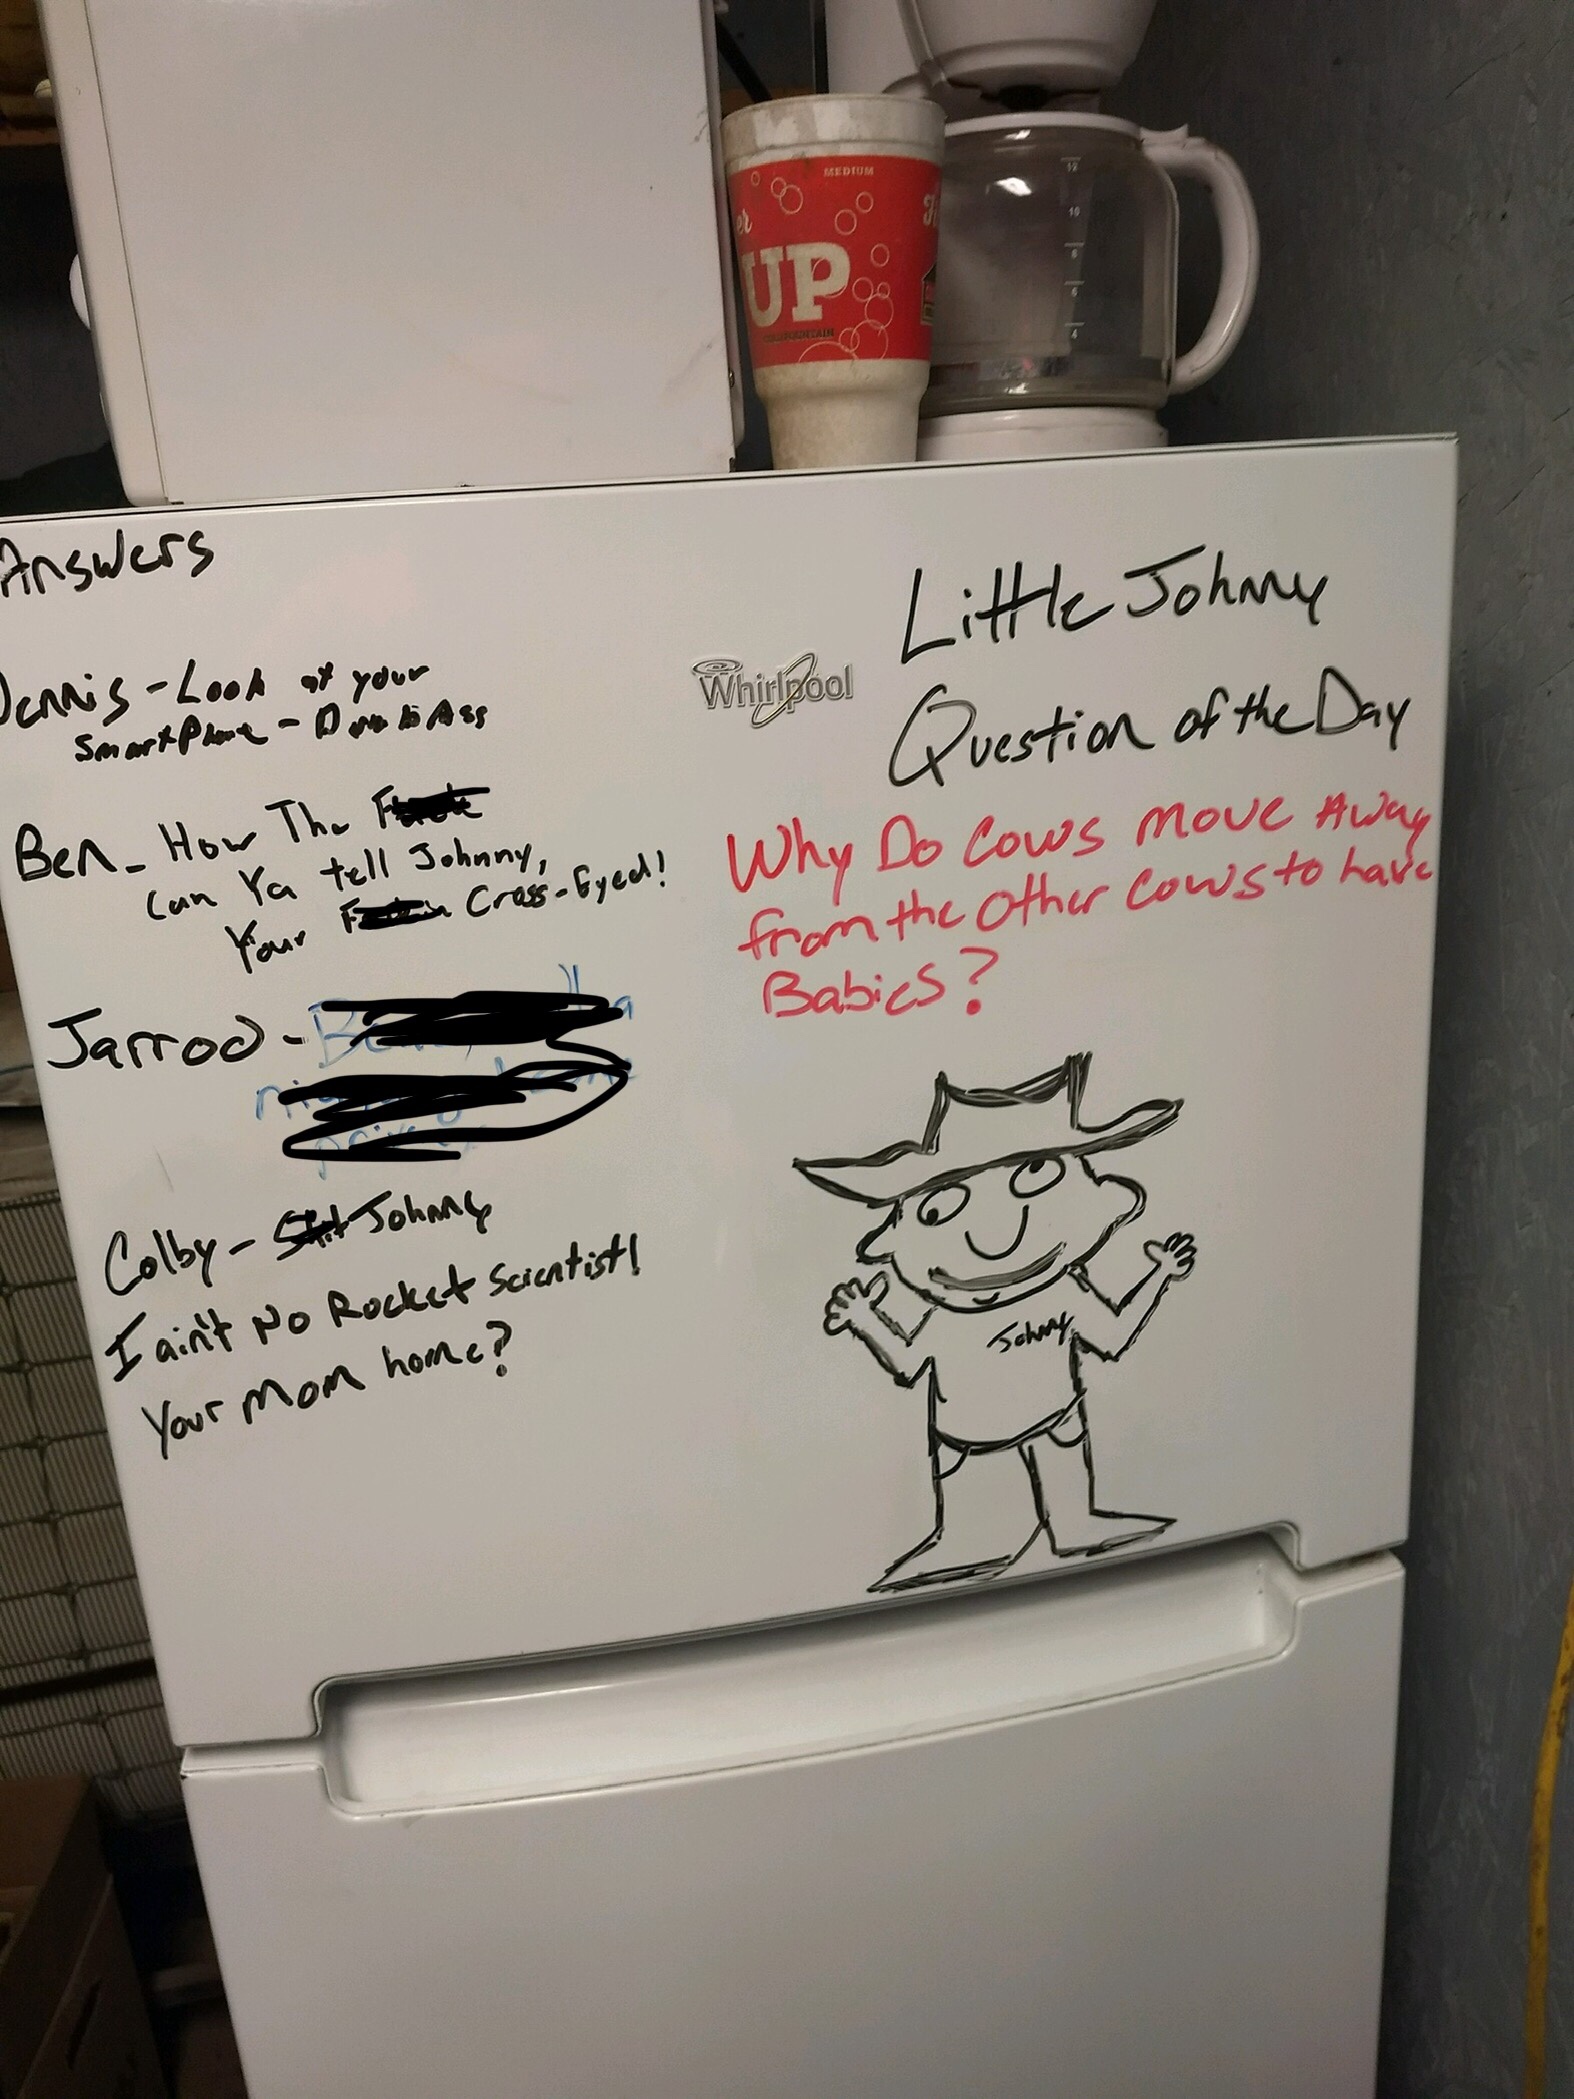 MEDIUM
UP
12
10
8
6
4
Answers
Dennis - Look at your
SmartPhone - Dumb Ass
Ben - How The
Can Ya tell Johnny,
Your Cross-Eyed!
Jarrod -
Colby - Johnny
I ain't No Rocket Scientist!
Your Mom home?
Whirlpool
Little Johnny
Question of the Day
Why Do Cows Move Away
from the Other Cows to have
Babies?
Johnny